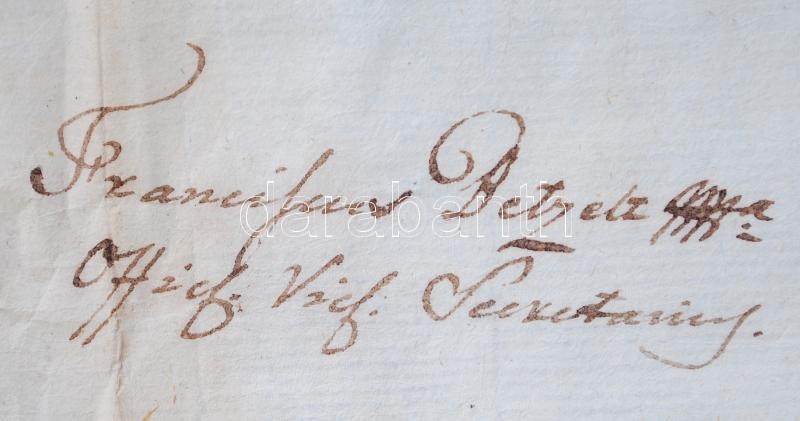 Franciscus Betzek mpa
Offic. Vic. Secretarius.
darabanth